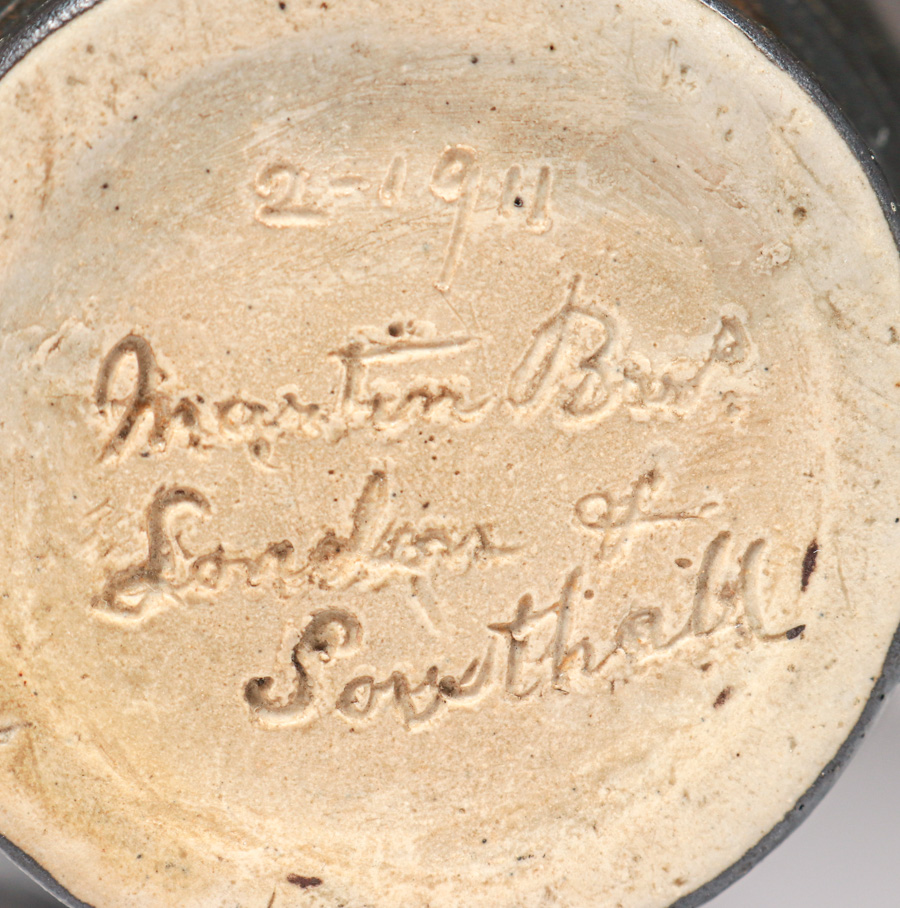 2-1911
Martin Bros
London &
Southall